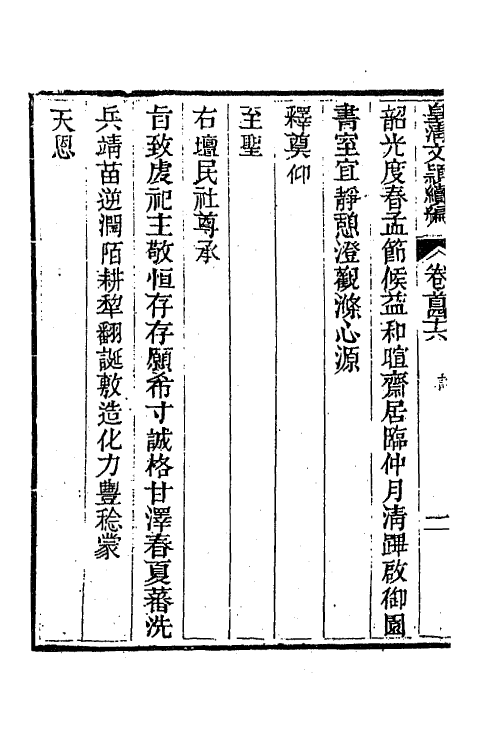 皇清文穎續編 卷首四十六 詩 二
韶光度春孟節候益和暄齋居臨仲月清蹕啟御園
書室宜靜憩澄觀滌心源
釋奠仰
至聖
右壇民社尊承
旨致虔祀主敬恒存存願希寸誠格甘澤春夏蕃洗
兵靖苗逆澗陌耕犂翻誕敷造化力豐稔蒙
天恩